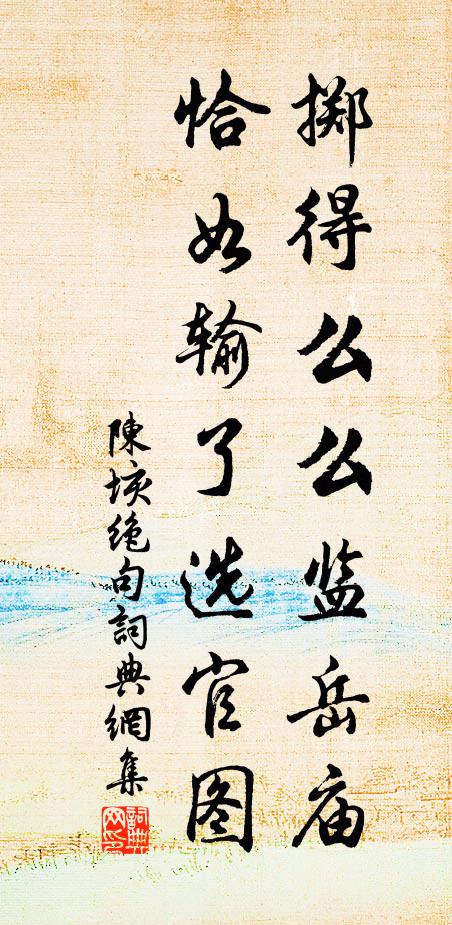 掷得么么监岳庙
恰如输了选官图
陳垓绝句詞典網集
詞典网印